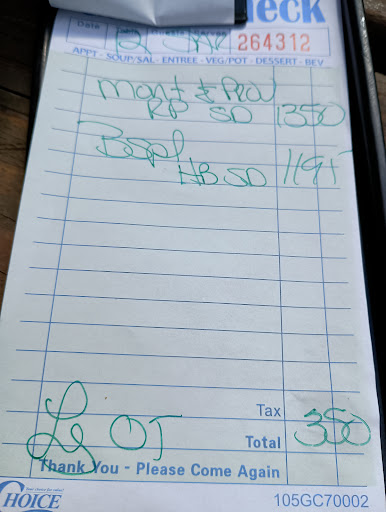 heck
Date
264312
APPT - SOUP/SAL - ENTREE - VEG/POT - DESSERT - BEV
RP SD 1350
Bspl
HB SD 1195
Tax
Lg OJ Total 350
Thank You - Please Come Again
CHOICE 105GC70002